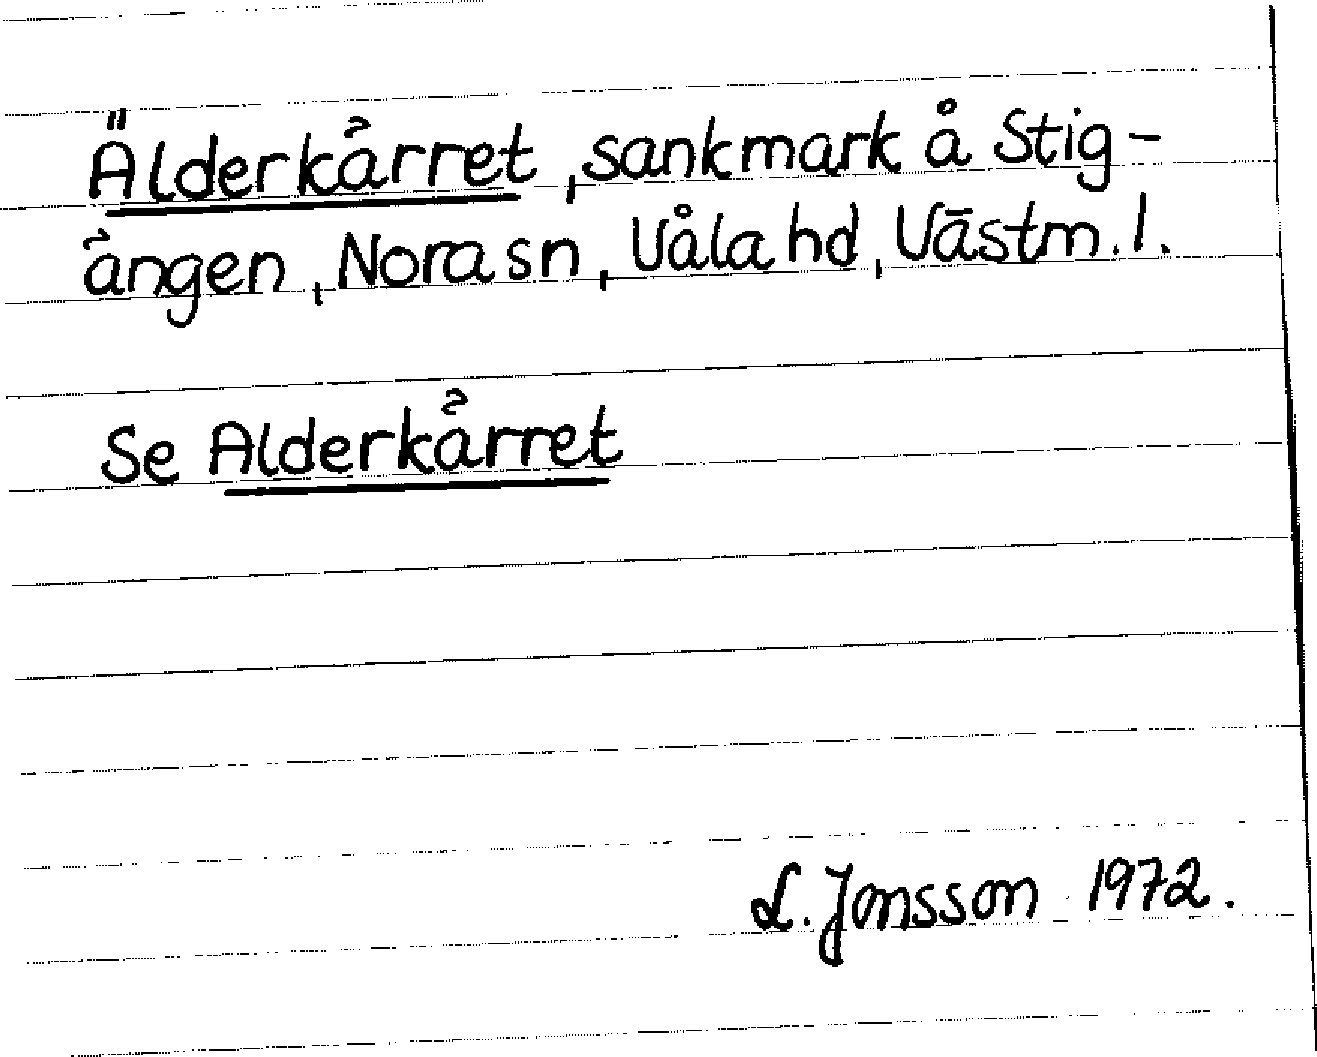 Älderkärret, sankmark å Stig-
ängen, Nora sn, Våla hd, Västm. l.
Se Alderkärret
L. Jonsson 1972.